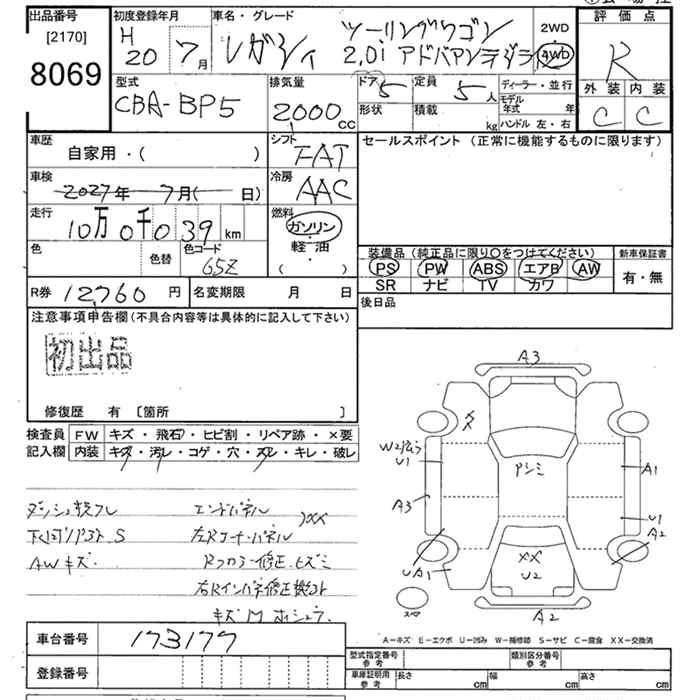 出品番号
[2170]
8069
初度登録年月
H 20 年 7 月
車名・グレード
ツーリングワゴン
レガシィ 2,0i アドバンテジライン
2WD
4WD
評価点
R
外装 内装
C C
型式
CBA-BP5
排気量
2000 cc
ドア 5
形状
定員 5 人
積載 kg
ディーラー・並行
モデル年式 年
ハンドル 左・右
車歴
自家用・( )
シフト
FAT
セールスポイント (正常に機能するものに限ります)
車検
2027年 7月( 日)
冷房
AAC
走行
10万0千039 km
燃料
ガソリン
・
軽・油
・
( )
色
色替
色コード
65Z
装備品 (純正品に限り○をつけてください)
新車保証書
PS PW ABS エアB AW
SR ナビ TV カワ
有・無
R券 12,760 円
名変期限 月 日
後日品
注意事項申告欄(不具合内容等は具体的に記入して下さい)
初出品
修復歴 有 〔箇所 〕
検査員 FW キズ・飛石・ヒビ割・リペア跡・×要
記入欄 内装 キズ・汚レ・コゲ・穴・スレ・キレ・破レ
A3
W2
U1
A3
UA1
アシミ
A1
U1
A2
XX
U2
A2
スペア
ダッシュ
エンドパネル
XX
S
左Rコーナーパネル
AWキズ
Rフロアー修正、ヒズミ
右Rインパネ修正
キズ M
A-キズ E-エクボ U-凹み W-補修跡 S-サビ C-腐食 XX-交換済
車台番号 173177
登録番号
型式指定番号 参考
類別区分番号 参考
車庫証明用 参考
長さ cm
幅 cm
高さ cm